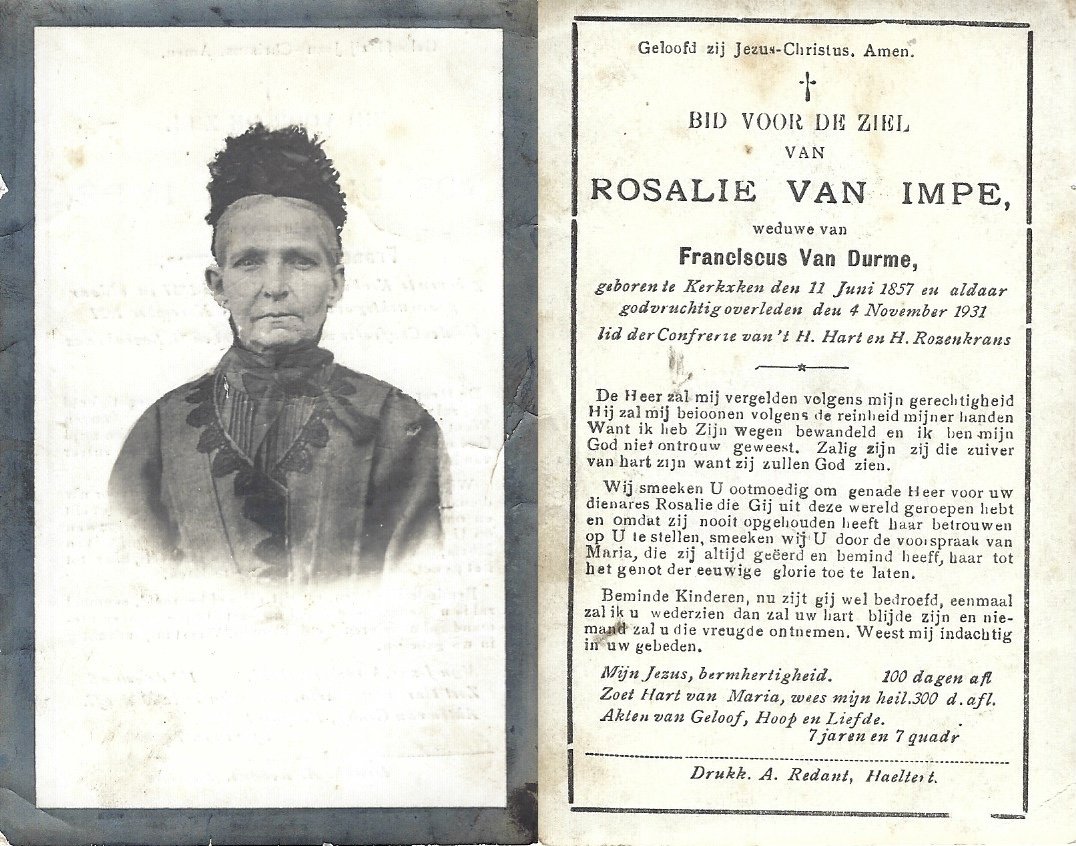 Geloofd zij Jezus-Christus. Amen.
BID VOOR DE ZIEL
VAN
ROSALIE VAN IMPE,
weduwe van
Franciscus Van Durme,
geboren te Kerkxken den 11 Juni 1857 en aldaar
godvruchtig overleden den 4 November 1931
lid der Confrerie van 't H. Hart en H. Rozenkrans
De Heer zal mij vergelden volgens mijn gerechtigheid
Hij zal mij beloonen volgens de reinheid mijner handen
Want ik heb Zijn wegen bewandeld en ik ben mijn
God niet ontrouw geweest. Zalig zijn zij die zuiver
van hart zijn want zij zullen God zien.
Wij smeeken U ootmoedig om genade Heer voor uw
dienares Rosalie die Gij uit deze wereld geroepen hebt
en omdat zij nooit opgehouden heeft haar betrouwen
op U te stellen, smeeken wij U door de voorspraak van
Maria, die zij altijd geëerd en bemind heeff, haar tot
het genot der eeuwige glorie toe te laten.
Beminde Kinderen, nu zijt gij wel bedroefd, eenmaal
zal ik u wederzien dan zal uw hart blijde zijn en nie-
mand zal u die vreugde ontnemen. Weest mij indachtig
in uw gebeden.
Mijn Jezus, bermhertigheid. 100 dagen afl
Zoet Hart van Maria, wees mijn heil. 300 d. afl.
Akten van Geloof, Hoop en Liefde.
7 jaren en 7 quadr
Drukk. A. Redant, Haeltert.